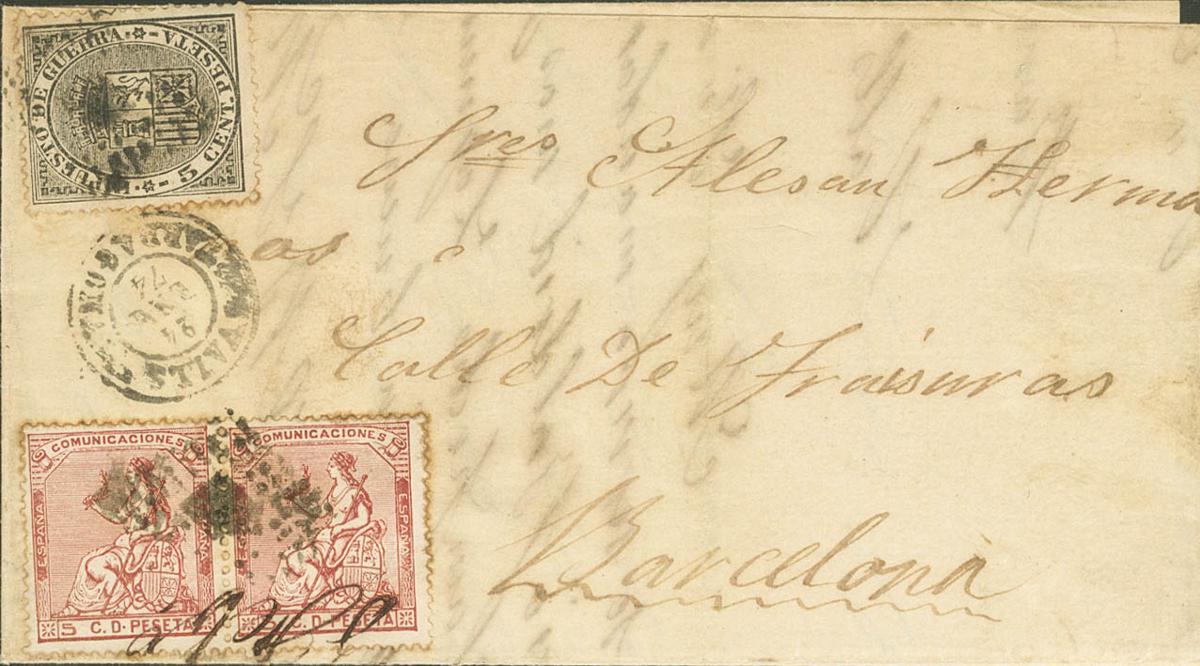 IMPUESTO DE GUERRA
5 CENT. PESETA
VALLS TARRAGONA
74
Sres Alesan Herma
os
Calle De Fraisuras
Barcelona
COMUNICACIONES
ESPAÑA
5 C. D. PESETA
COMUNICACIONES
ESPAÑA
C. D. PESETA